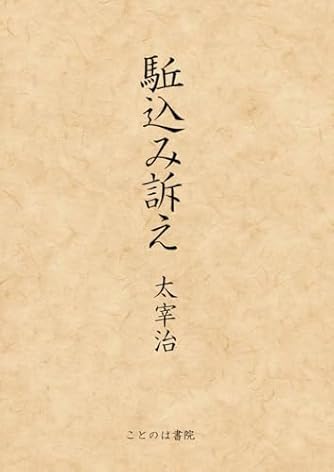 駈込み訴え
太宰治
ことのは書院